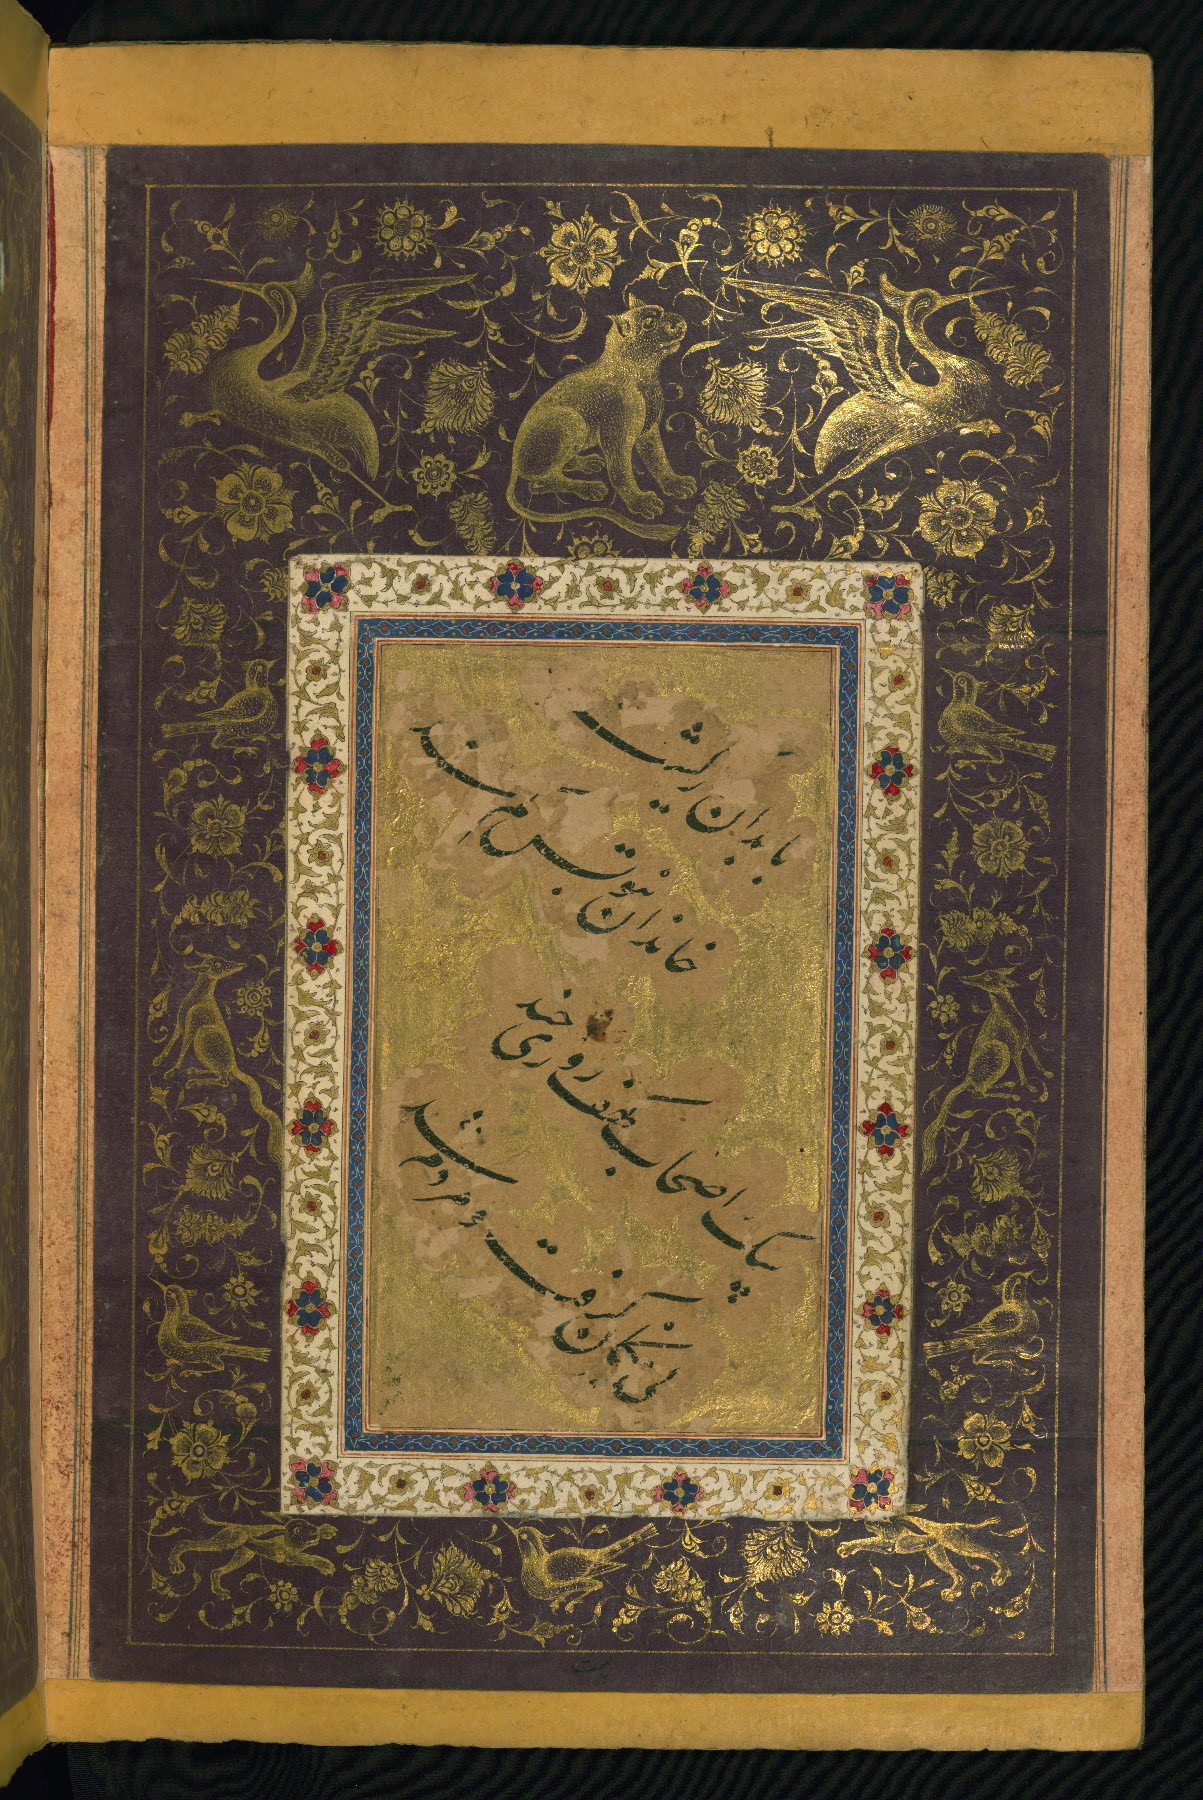 با بدان یار گشت
خاندان نبوتش گم شد
سگ اصحاب کهف روزی چند
پی نیکان گرفت و مردم شد